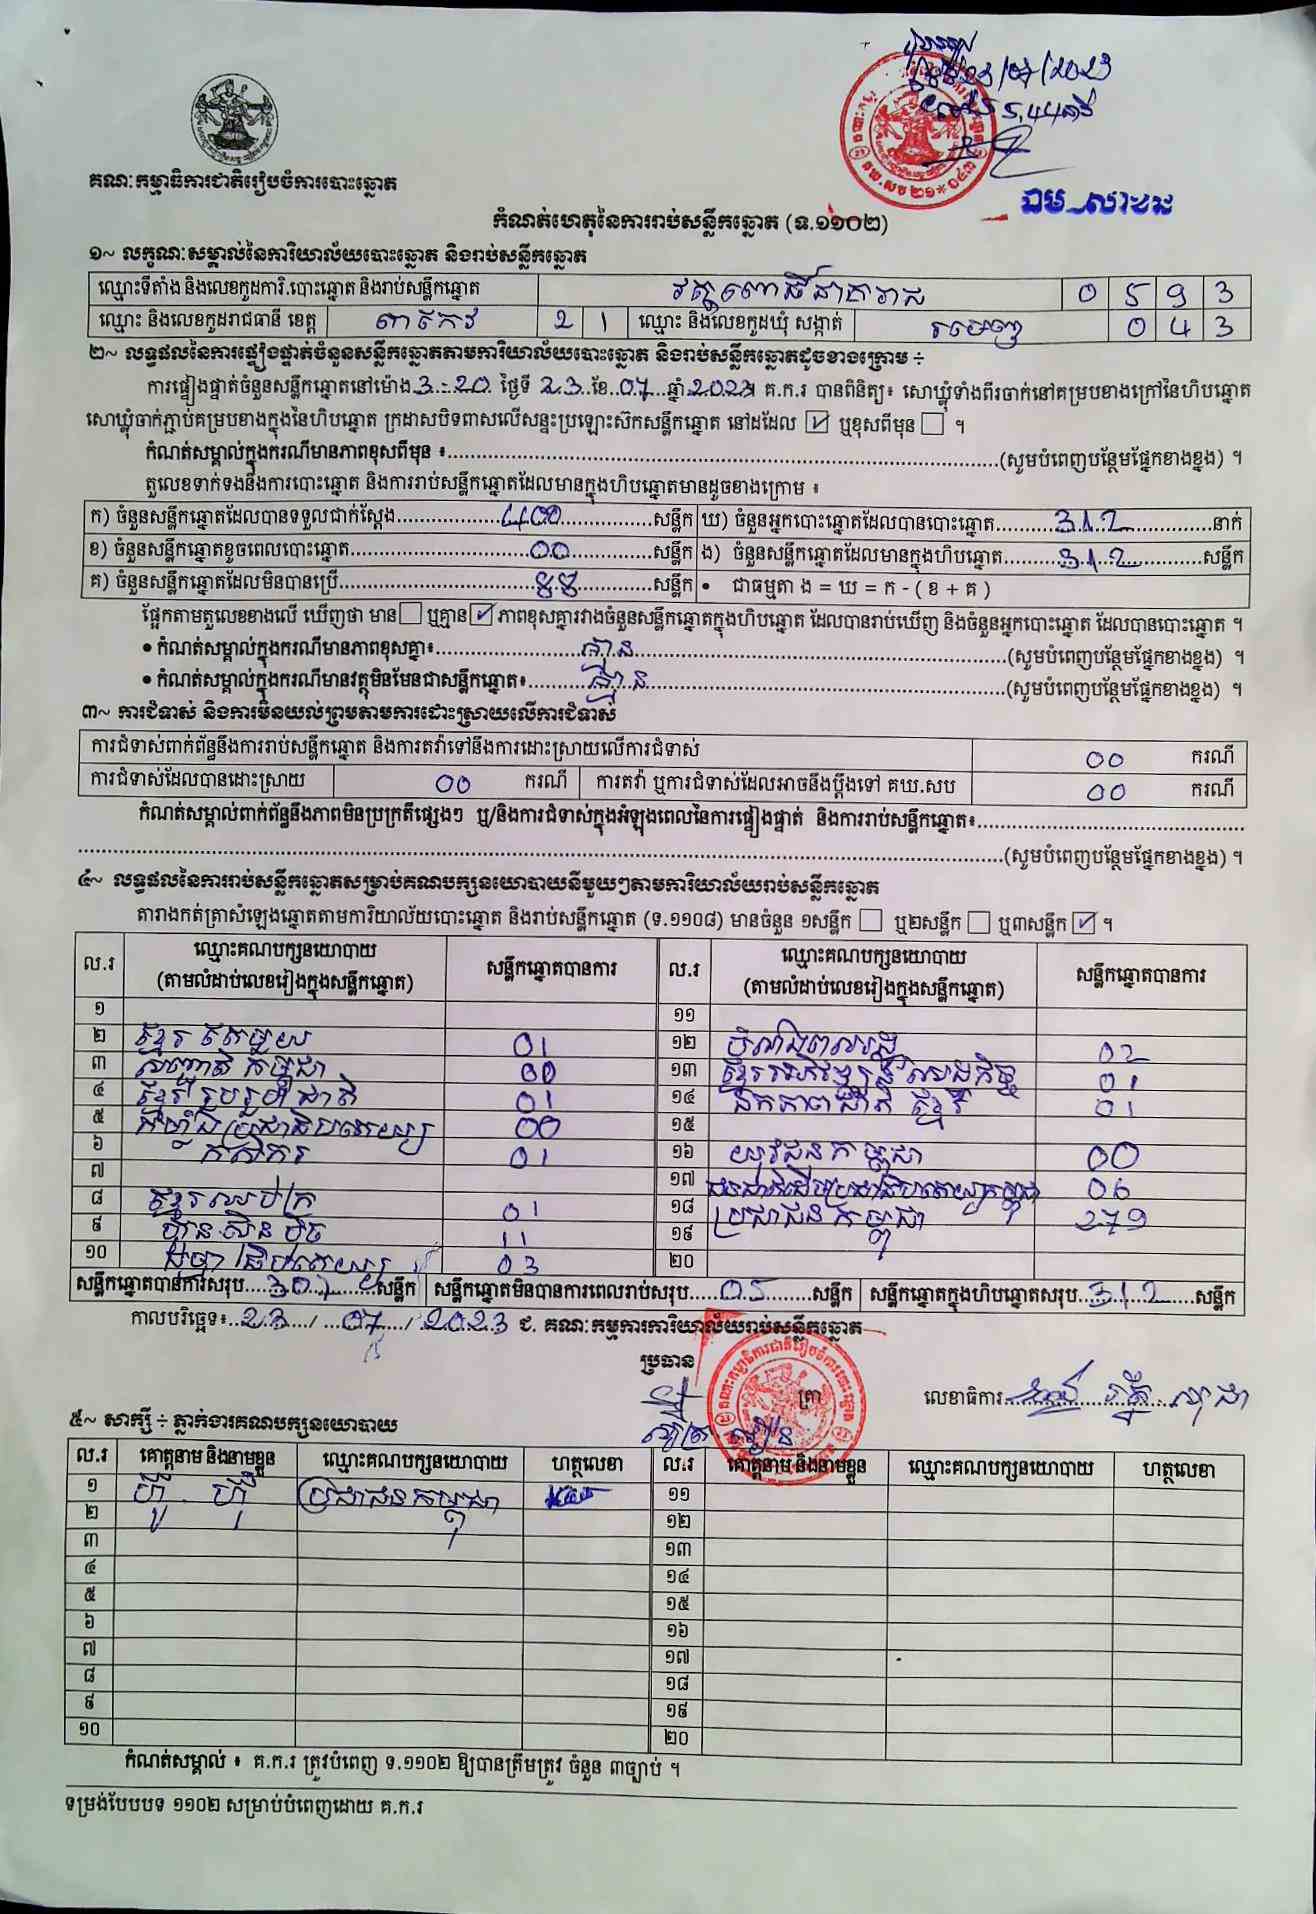 គណៈកម្មាធិការជាតិរៀបចំការបោះឆ្នោត
កំណត់ហេតុនៃការរាប់សន្លឹកឆ្នោត (ទ.១១០២)
១~ លក្ខណៈសម្គាល់នៃការិយាល័យបោះឆ្នោត និងរាប់សន្លឹកឆ្នោត
ឈ្មោះទីតាំង និងលេខកូដការិ.បោះឆ្នោត និងរាប់សន្លឹកឆ្នោត 0 5 9 3
ឈ្មោះ និងលេខកូដរាជធានី ខេត្ត តាកែវ 2 1 ឈ្មោះ និងលេខកូដឃុំ សង្កាត់ រមេញ 0 4 3
២~ លទ្ធផលនៃការផ្ទៀងផ្ទាត់ចំនួនសន្លឹកឆ្នោតតាមការិយាល័យបោះឆ្នោត និងរាប់សន្លឹកឆ្នោតដូចខាងក្រោម ÷
ការផ្ទៀងផ្ទាត់ចំនួនសន្លឹកឆ្នោតនៅម៉ោង 3:20 ថ្ងៃទី 23 ខែ 07 ឆ្នាំ 2023 គ.ក.រ បានពិនិត្យ៖ សោឃ្លុំទាំងពីរចាក់នៅគម្របខាងក្រៅនៃហិបឆ្នោត
សោឃ្លុំចាក់ភ្ជាប់គម្របខាងក្នុងនៃហិបឆ្នោត ក្រដាសបិទពាសលើសន្ទះប្រឡោះស៊កសន្លឹកឆ្នោត នៅដដែល ☑ ឬខុសពីមុន ☐ ។
កំណត់សម្គាល់ក្នុងករណីមានភាពខុសពីមុន ៖ (សូមបំពេញបន្ថែមផ្នែកខាងខ្នង) ។
តួលេខទាក់ទងនឹងការបោះឆ្នោត និងការរាប់សន្លឹកឆ្នោតដែលមានក្នុងហិបឆ្នោតមានដូចខាងក្រោម ៖
ក) ចំនួនសន្លឹកឆ្នោតដែលបានទទួលជាក់ស្តែង 400 សន្លឹក ឃ) ចំនួនអ្នកបោះឆ្នោតដែលបានបោះឆ្នោត 312 នាក់
ខ) ចំនួនសន្លឹកឆ្នោតខូចពេលបោះឆ្នោត 00 សន្លឹក ង) ចំនួនសន្លឹកឆ្នោតដែលមានក្នុងហិបឆ្នោត 312 សន្លឹក
គ) ចំនួនសន្លឹកឆ្នោតដែលមិនបានប្រើ 88 សន្លឹក • ជាធម្មតា ង = ឃ = ក - ( ខ + គ )
ផ្អែកតាមតួលេខខាងលើ ឃើញថា មាន ☐ ឬគ្មាន ☑ ភាពខុសគ្នារវាងចំនួនសន្លឹកឆ្នោតក្នុងហិបឆ្នោត ដែលបានរាប់ឃើញ និងចំនួនអ្នកបោះឆ្នោត ដែលបានបោះឆ្នោត ។
• កំណត់សម្គាល់ក្នុងករណីមានភាពខុសគ្នា៖ គ្មាន (សូមបំពេញបន្ថែមផ្នែកខាងខ្នង) ។
• កំណត់សម្គាល់ក្នុងករណីមានវត្ថុមិនមែនជាសន្លឹកឆ្នោត៖ គ្មាន (សូមបំពេញបន្ថែមផ្នែកខាងខ្នង) ។
៣~ ការជំទាស់ និងការមិនយល់ព្រមតាមការដោះស្រាយលើការជំទាស់
ការជំទាស់ពាក់ព័ន្ធនឹងការរាប់សន្លឹកឆ្នោត និងការតវ៉ាទៅនឹងការដោះស្រាយលើការជំទាស់ 00 ករណី
ការជំទាស់ដែលបានដោះស្រាយ 00 ករណី ការតវ៉ា ឬការជំទាស់ដែលអាចនឹងប្តឹងទៅ គឃ.សប 00 ករណី
កំណត់សម្គាល់ពាក់ព័ន្ធនឹងភាពមិនប្រក្រតីផ្សេងៗ ឬ/និងការជំទាស់ក្នុងអំឡុងពេលនៃការផ្ទៀងផ្ទាត់ និងការរាប់សន្លឹកឆ្នោត៖
(សូមបំពេញបន្ថែមផ្នែកខាងខ្នង) ។
៤~ លទ្ធផលនៃការរាប់សន្លឹកឆ្នោតសម្រាប់គណបក្សនយោបាយនីមួយៗតាមការិយាល័យរាប់សន្លឹកឆ្នោត
តារាងកត់ត្រាសំឡេងឆ្នោតតាមការិយាល័យបោះឆ្នោត និងរាប់សន្លឹកឆ្នោត (ទ.១១០៨) មានចំនួន ១សន្លឹក ☐ ឬ២សន្លឹក ☐ ឬ៣សន្លឹក ☑ ។
ល.រ ឈ្មោះគណបក្សនយោបាយ (តាមលំដាប់លេខរៀងក្នុងសន្លឹកឆ្នោត) សន្លឹកឆ្នោតបានការ ល.រ ឈ្មោះគណបក្សនយោបាយ (តាមលំដាប់លេខរៀងក្នុងសន្លឹកឆ្នោត) សន្លឹកឆ្នោតបានការ
១ ១១
២ ខ្មែរតែមួយ 01 ១២ 02
៣ សញ្ជាតិកម្ពុជា 00 ១៣ ខ្មែរអភិវឌ្ឍន៍សេដ្ឋកិច្ច 01
៤ ខ្មែររួបរួមជាតិ 01 ១៤ ឯកភាពជាតិខ្មែរ 01
៥ កម្លាំងប្រជាធិបតេយ្យ 00 ១៥
៦ កសិករ 01 ១៦ យុវជនកម្ពុជា 00
៧ ១៧ ជនជាតិដើមប្រជាធិបតេយ្យកម្ពុជា 06
៨ ខ្មែរឈប់ក្រ 01 ១៨ ប្រជាជនកម្ពុជា 279
៩ ហ្វ៊ុនស៊ិនប៉ិច 11 ១៩
១០ ធម្មាធិបតេយ្យ 03 ២០
សន្លឹកឆ្នោតបានការសរុប 307 សន្លឹក សន្លឹកឆ្នោតមិនបានការពេលរាប់សរុប 05 សន្លឹក សន្លឹកឆ្នោតក្នុងហិបឆ្នោតសរុប 312 សន្លឹក
កាលបរិច្ឆេទ៖ 23 / 07 / 2023 ជ. គណៈកម្មការការិយាល័យរាប់សន្លឹកឆ្នោត
ប្រធាន ត្រា លេខាធិការ
៥~ សាក្សី ÷ ភ្នាក់ងារគណបក្សនយោបាយ
ល.រ គោត្តនាម និងនាមខ្លួន ឈ្មោះគណបក្សនយោបាយ ហត្ថលេខា ល.រ គោត្តនាម និងនាមខ្លួន ឈ្មោះគណបក្សនយោបាយ ហត្ថលេខា
១ ប្រជាជនកម្ពុជា ១១
២ ១២
៣ ១៣
៤ ១៤
៥ ១៥
៦ ១៦
៧ ១៧
៨ ១៨
៩ ១៩
១០ ២០
កំណត់សម្គាល់ ៖ គ.ក.រ ត្រូវបំពេញ ទ.១១០២ ឱ្យបានត្រឹមត្រូវ ចំនួន ៣ច្បាប់ ។
ទម្រង់បែបបទ ១១០២ សម្រាប់បំពេញដោយ គ.ក.រ